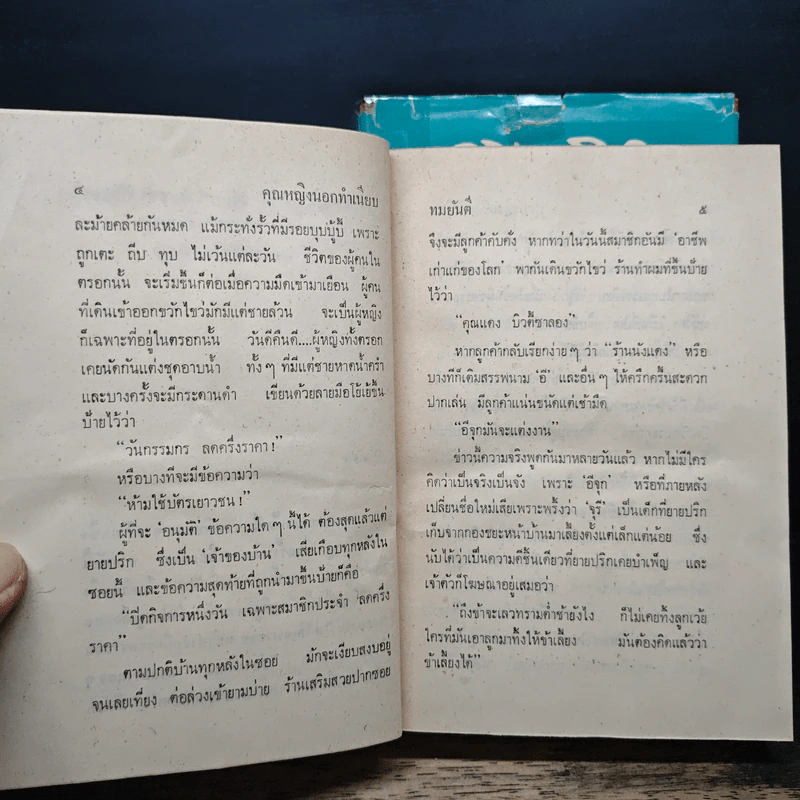 ๔ คุณหญิงนอกทำเนียบ
ละม้ายคล้ายกันหมด แม้กระทั่งรั้วที่มีรอยบุบบู้บี้ เพราะ
ถูกเตะ ถีบ ทุบ ไม่เว้นแต่ละวัน ชีวิตของผู้คนใน
ตรอกนั้น จะเริ่มขึ้นก็ต่อเมื่อความมืดเข้ามาเยือน ผู้คน
ที่เดินเข้าออกขวักไขว่มักมีแต่ชายล้วน จะเป็นผู้หญิง
ก็เฉพาะที่อยู่ในตรอกนั้น วันดีคืนดี....ผู้หญิงทั้งตรอก
เคยนัดกันแต่งชุดอาบน้ำ ทั้งๆ ที่มีแต่ชายหาดน้ำครำ
และบางครั้งจะมีกระดานดำ เขียนด้วยลายมือโย้เย้ขึ้น
ป้ายไว้ว่า
“วันกรรมกร ลดครึ่งราคา!”
หรือบางทีจะมีข้อความว่า
“ห้ามใช้บัตรเยาวชน!”
ผู้ที่จะ ‘อนุมัติ’ ข้อความใดๆ นี้ได้ ต้องสุดแล้วแต่
ยายปริก ซึ่งเป็น ‘เจ้าของบ้าน’ เสียเกือบทุกหลังใน
ซอยนี้ และข้อความสุดท้ายที่ถูกนำมาขึ้นป้ายก็คือ
“ปิดกิจการหนึ่งวัน เฉพาะสมาชิกประจำ ลดครึ่ง
ราคา”
ตามปกติบ้านทุกหลังในซอย มักจะเงียบสงบอยู่
จนเลยเที่ยง ต่อล่วงเข้ายามบ่าย ร้านเสริมสวยปากซอย
ทมยันตี ๕
จึงจะมีลูกค้าคับคั่ง หากทว่าในวันนี้สมาชิกอันมี ‘อาชีพ
เก่าแก่ของโลก’ พากันเดินขวักไขว่ ร้านทำผมที่ขึ้นป้าย
ไว้ว่า
“คุณแดง บิวตี้ซาลอง”
หากลูกค้ากลับเรียกง่ายๆ ว่า “ร้านนังแดง” หรือ
บางทีก็เติมสรรพนาม ‘อี’ และอื่นๆ ให้ครึกครื้นสะดวก
ปากเล่น มีลูกค้าแน่นขนัดแต่เช้ามืด
“อีจุกมันจะแต่งงาน”
ข่าวนี้ความจริงพูดกันมาหลายวันแล้ว หากไม่มีใคร
คิดว่าเป็นจริงเป็นจัง เพราะ ‘อีจุก’ หรือที่ภายหลัง
เปลี่ยนชื่อใหม่เสียเพราะพริ้งว่า ‘จุรี’ เป็นเด็กที่ยายปริก
เก็บจากกองขยะหน้าบ้านมาเลี้ยงตั้งแต่เล็กแต่น้อย ซึ่ง
นับได้ว่าเป็นความดีชิ้นเดียวที่ยายปริกเคยบำเพ็ญ และ
เจ้าตัวก็โฆษณาอยู่เสมอว่า
“ถึงข้าจะเลวทรามต่ำช้ายังไง ก็ไม่เคยทิ้งลูกเว้ย
ใครที่มันเอาลูกมาทิ้งให้ข้าเลี้ยง มันต้องคิดแล้วว่า
ข้าเลี้ยงได้”